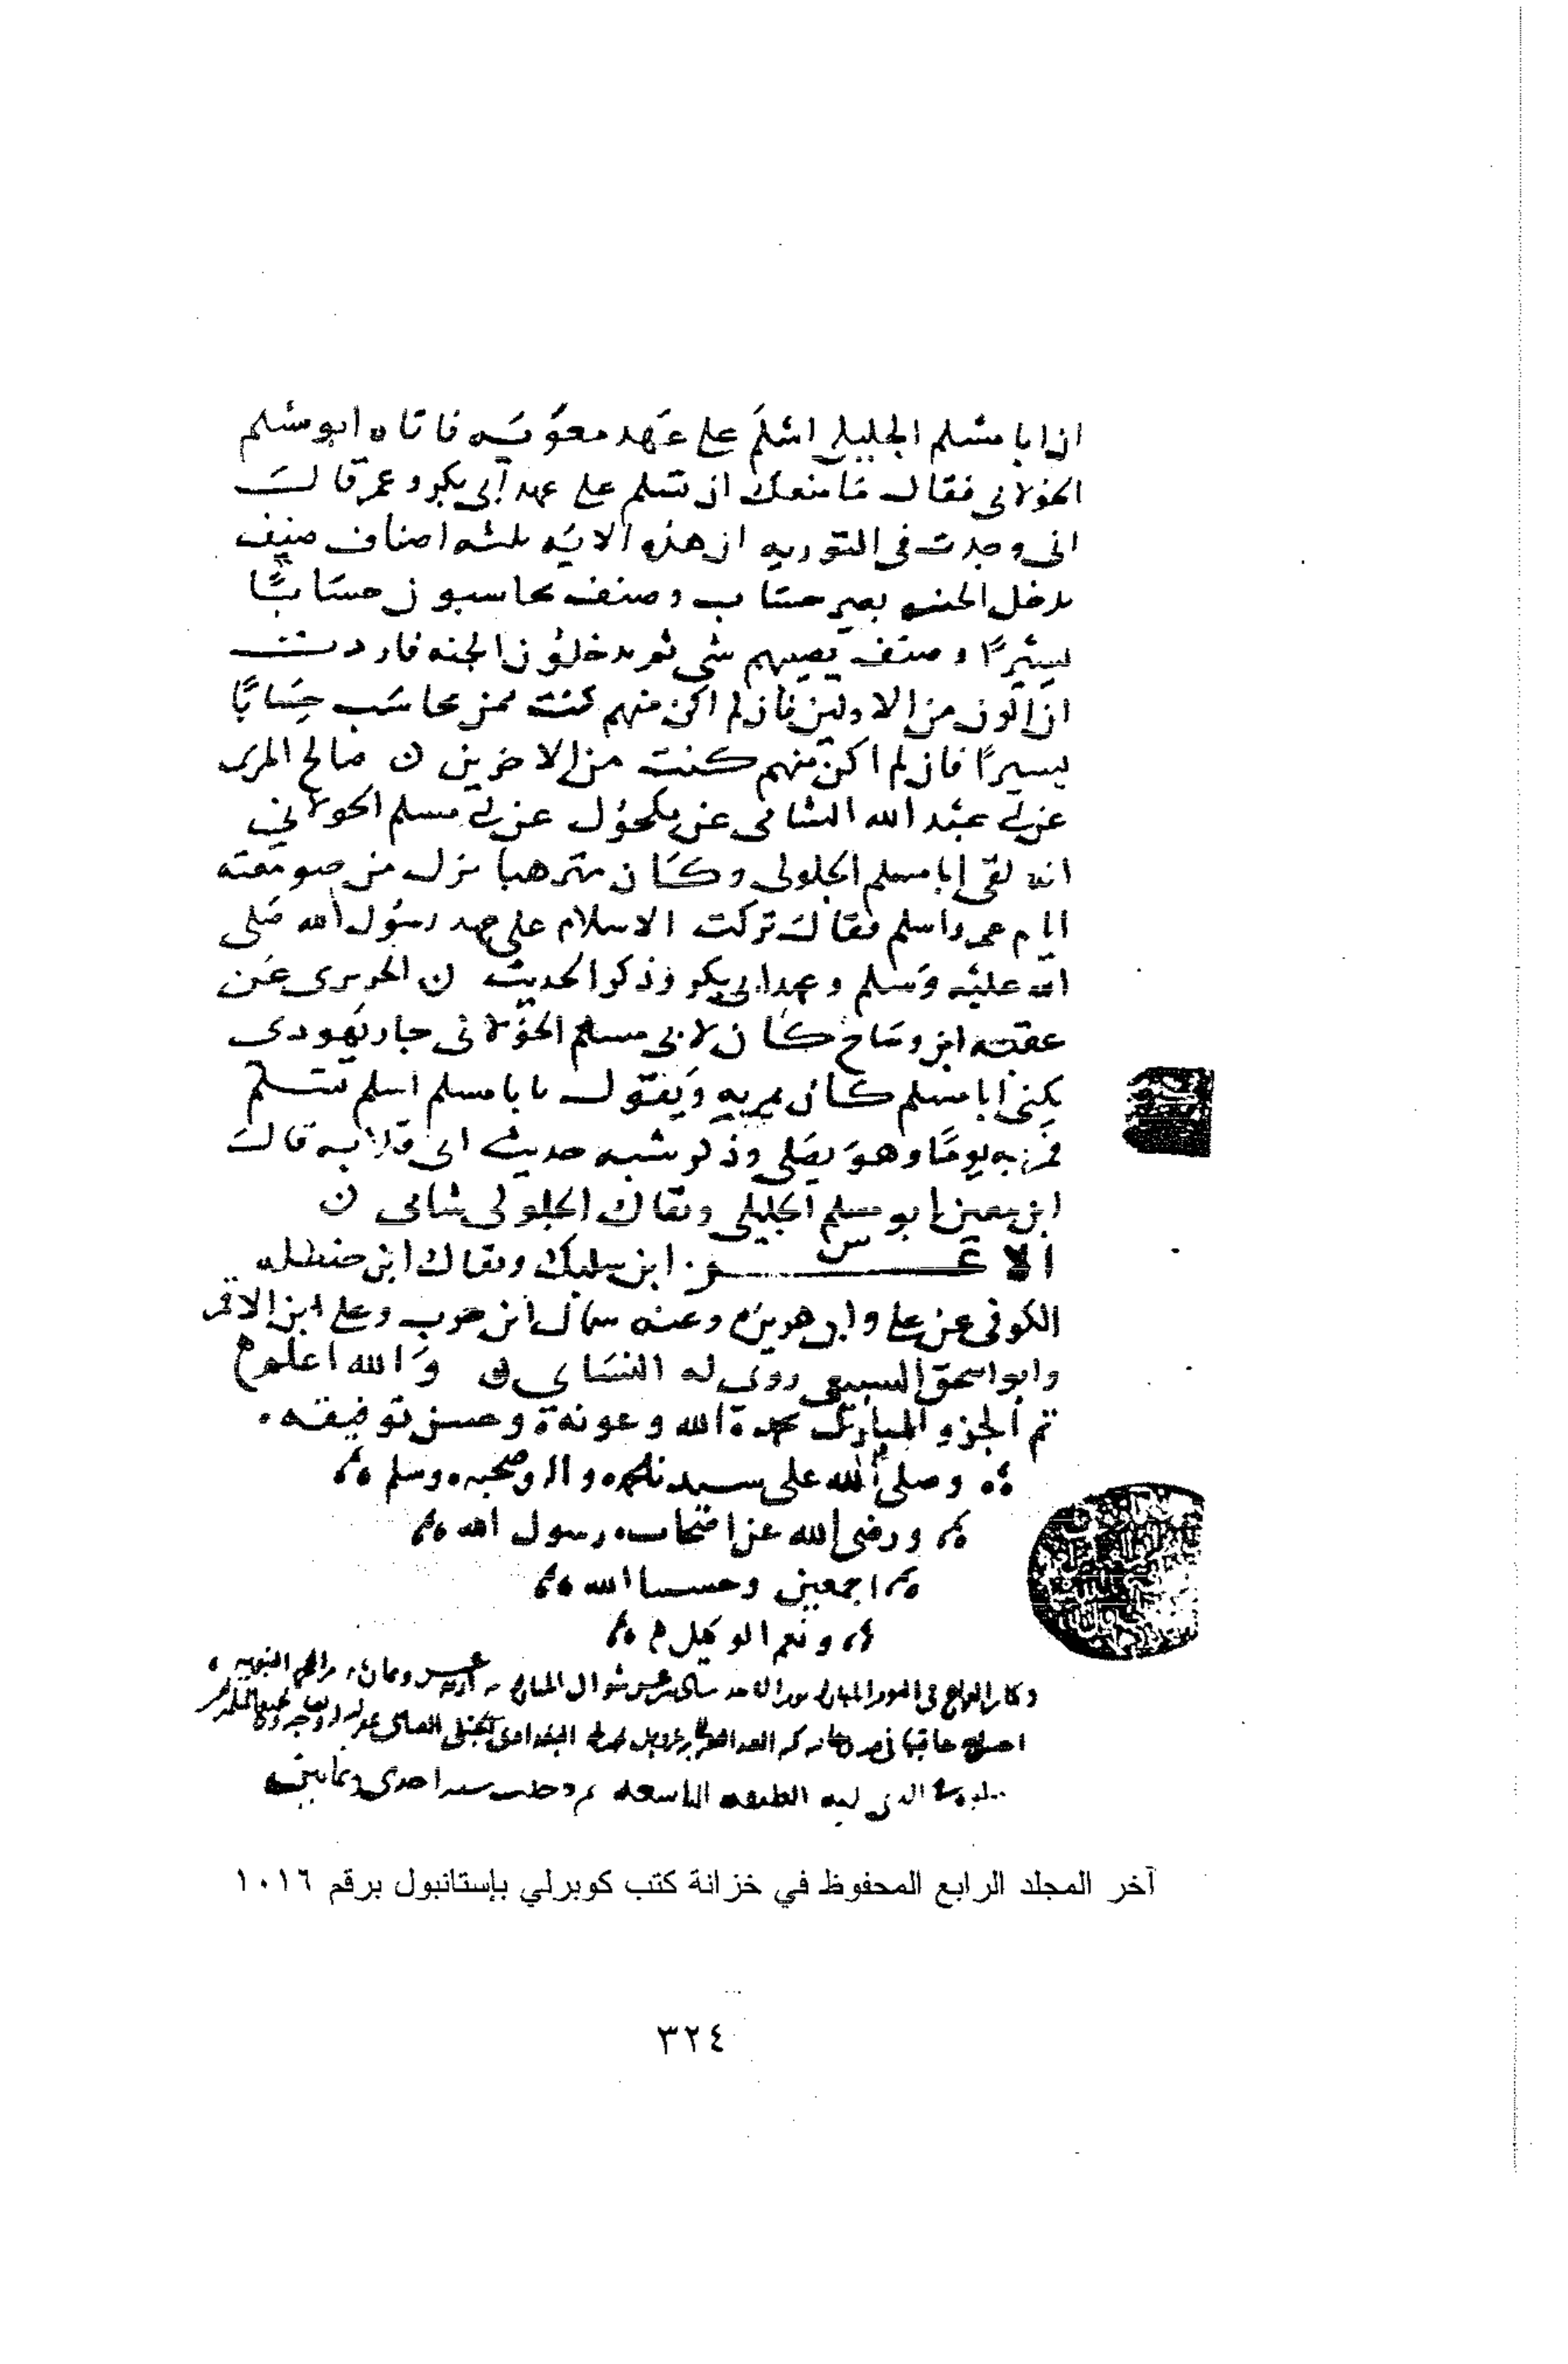 ان ابا مسلم الجليلي اسلم على عهد معوية فاتاه ابو مسلم
الخولاني فقال ما منعك ان تسلم على عهد ابي بكر وعمر قال
اني وجدت في التورية ان هذه الامة ثلثة اصناف صنف
يدخل الجنة بغير حساب وصنف يحاسبون حسابًا
يسيرًا وصنف يصيبهم شي ثم يدخلون الجنة فاردت
ان اكون من الاولين فان لم اكن منهم كنت ممن يحاسب حسابًا
يسيرًا فان لم اكن منهم كنت من الاخرين ن صالح المري
عن ابي عبد الله الشامي عن مكحول عن ابي مسلم الخولاني
انه لقي ابا مسلم الجلولي وكان مترهبا نزل من صومعته
ايام عمر واسلم فقال تركت الاسلام على عهد رسول الله صلى
الله عليه وسلم وعهد ابي بكر وذكر الحديث ن الجريري عن
عقبة ابن وساج كان لابي مسلم الخولاني جار يهودي
يكنى ابا مسلم كان يمر به ويقول يا با مسلم اسلم تسلم
فمر به يومًا وهو يصلي وذكر شبه حديث ابي قلابة قال
ابن معين ابو مسلم الجليلي ويقال الجلولي شامي ن
الاغر ابن سليك ويقال ابن حنظلة
الكوفي عن علي وابي هريرة وعنه سماك ابن حرب وعلي ابن الاقمر
وابو اسحق السبيعي روى له النساي ن والله اعلم
تم الجزو المبارك بحمد الله وعونه وحسن توفيقه
وصلى الله على سيدنا محمد واله وصحبه وسلم
ورضي الله عن اصحاب رسول الله
اجمعين وحسبنا الله
ونعم الوكيل
وكان الفراغ في شوال المبارك النبوية
احسن الله عاقبتها البغدادي الحنبلي
الذي الطبقة التاسعة احدى وثمانين
آخر المجلد الرابع المحفوظ في خزانة كتب كوبرلي بإستانبول برقم ١٠١٦
٣٢٤